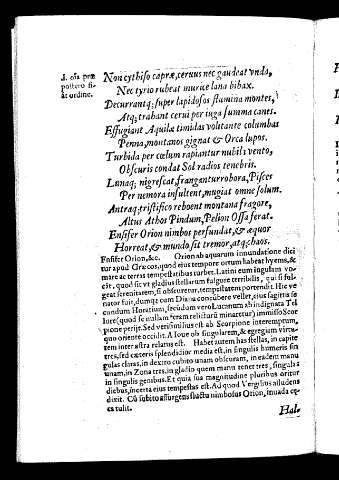 I. oīa præ
postero fi-
āt ordine.
Non cythiso capræ, ceruus nec gaudeat vndo,
Nec tyrio rubeat murice lana bibax.
Decurrantq; super lapidosos flumina montes,
Atq; trahant cerui per iuga summa canes.
Effugiant Aquilæ timidas volitante columbas
Penna, montanos gignat & Orca lupos.
Turbida per cœlum rapiantur nubila vento,
Obscuris condat Sol radios tenebris.
Lunaq; nigrescat, frangantur robora, Pisces
Per nemora insultent, mugiat omne solum.
Antraq; tristifico reboent montana fragore,
Altus Athos Pindum, Pelion Ossa ferat.
Ensifer Orion nimbos perfundat, & æquor
Horreat, & mundo sit tremor, atq; chaos.
Ensifer Orion, &c. Orion ab aquarum inundatione dici
tur apud Græcos, quod eius tempore ortum habeat hyems, &
mare ac terras tempestatibus turbet. Latini eum iugulam vo-
cāt, quod sit vt gladius stellarum fulgure terribilis, qui si ful-
geat serenitatem, si obscuretur, tempestatem portendit. Hic ve
nator fuit, dumque cum Diana concubere vellet, eius sagitta se
cundum Horatium, secūdum vero Lucanum ab indignata Tel
lore (quod se nullam feram relicturū minaretur) immisso Scor
pione perijt. Sed verisimilius est ab Scorpione interemptum,
quo oriente occidit. A Ioue ob singularem, & egregium virtu-
tem inter astra relatus est. Habet autem has stellas, in capite
tres, sed cæteris splendidior media est, in singulis humeris sin
gulas claras, in dextro cubito unam obscuram, in eadem manu
unam, in Zona tres, in gladio quem manu tenet tres, singulas
in singulis genibus. Et quia sua magnitudine pluribus oritur
diebus, incerta eius tempestas est. Ad quod Vergilius alludens
dixit. Cū subito assurgens fluctu nimbosus Orion, in uada cę-
ca tulit.
Hal-